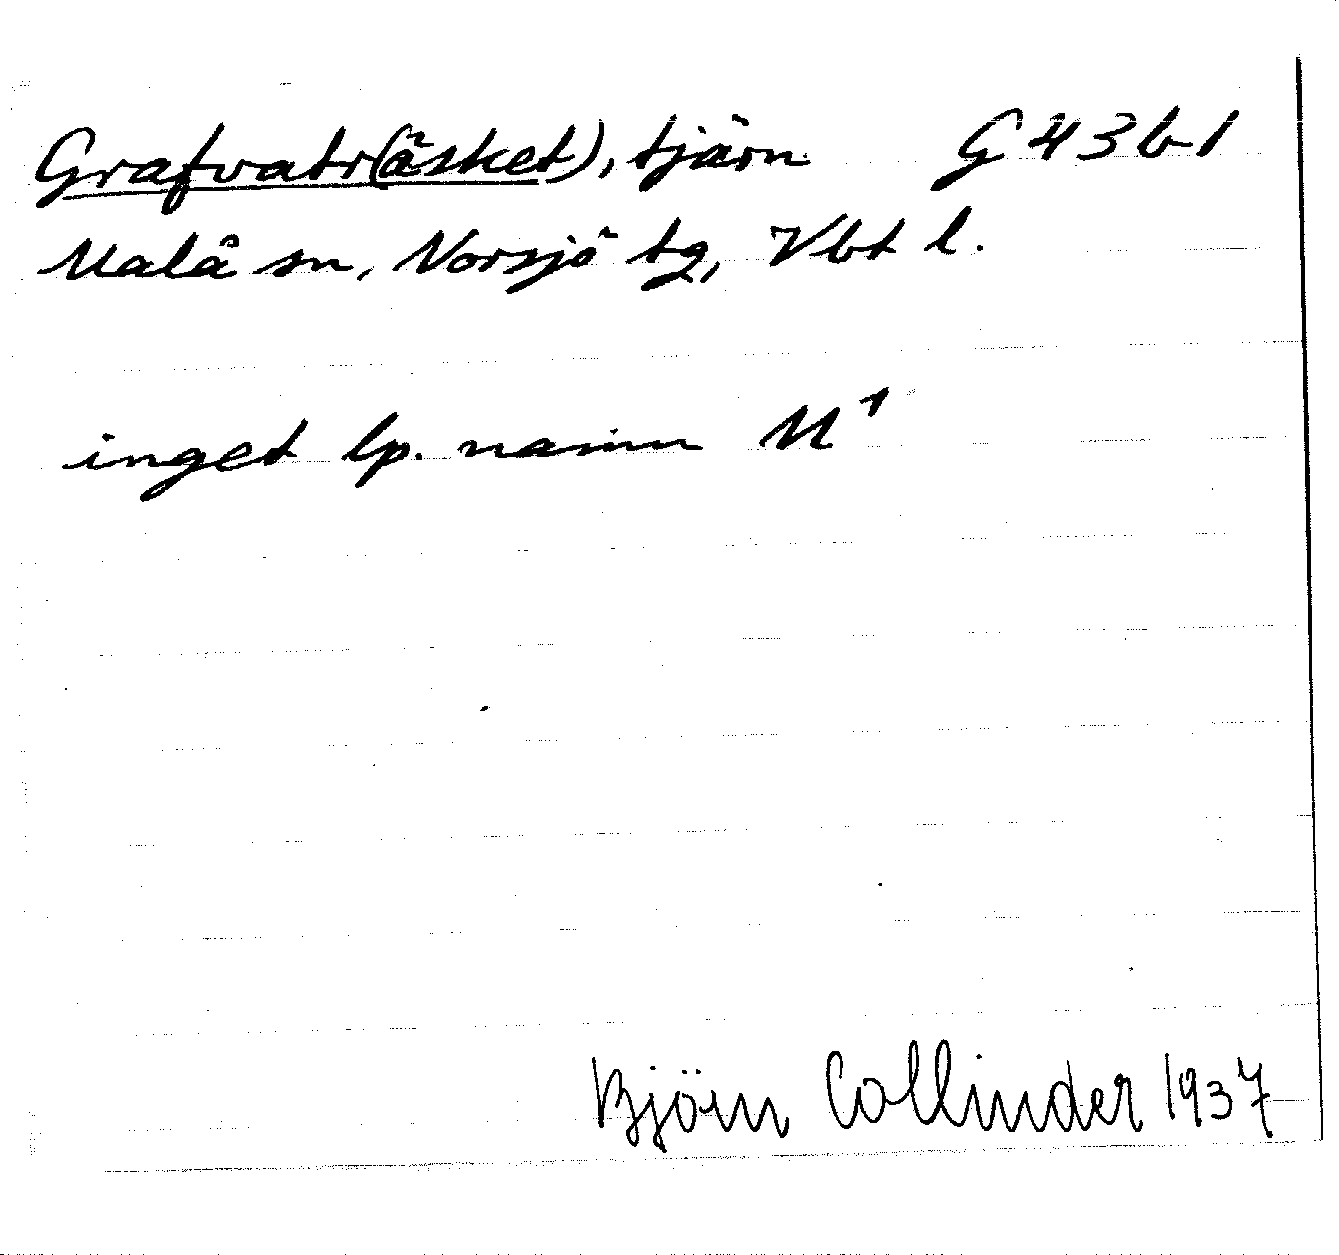 Grafvatr(äsket), tjärn G 43 b 1
Malå sn, Norsjö tg, Vbt l.
inget lp. namn M¹
Björn Collinder 1937